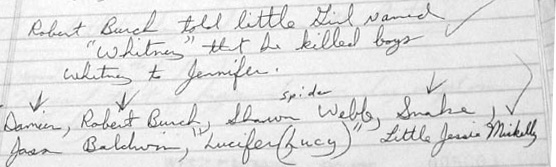 Robert Burch told little Girl named
"Whitney" that he killed boys
Whitney to Jennifer.
spider
Damien, Robert Burch, Shawn Webb, Snake,
Jason Baldwin, "Lucifer (Lucy)" Little Jessie Miskelly